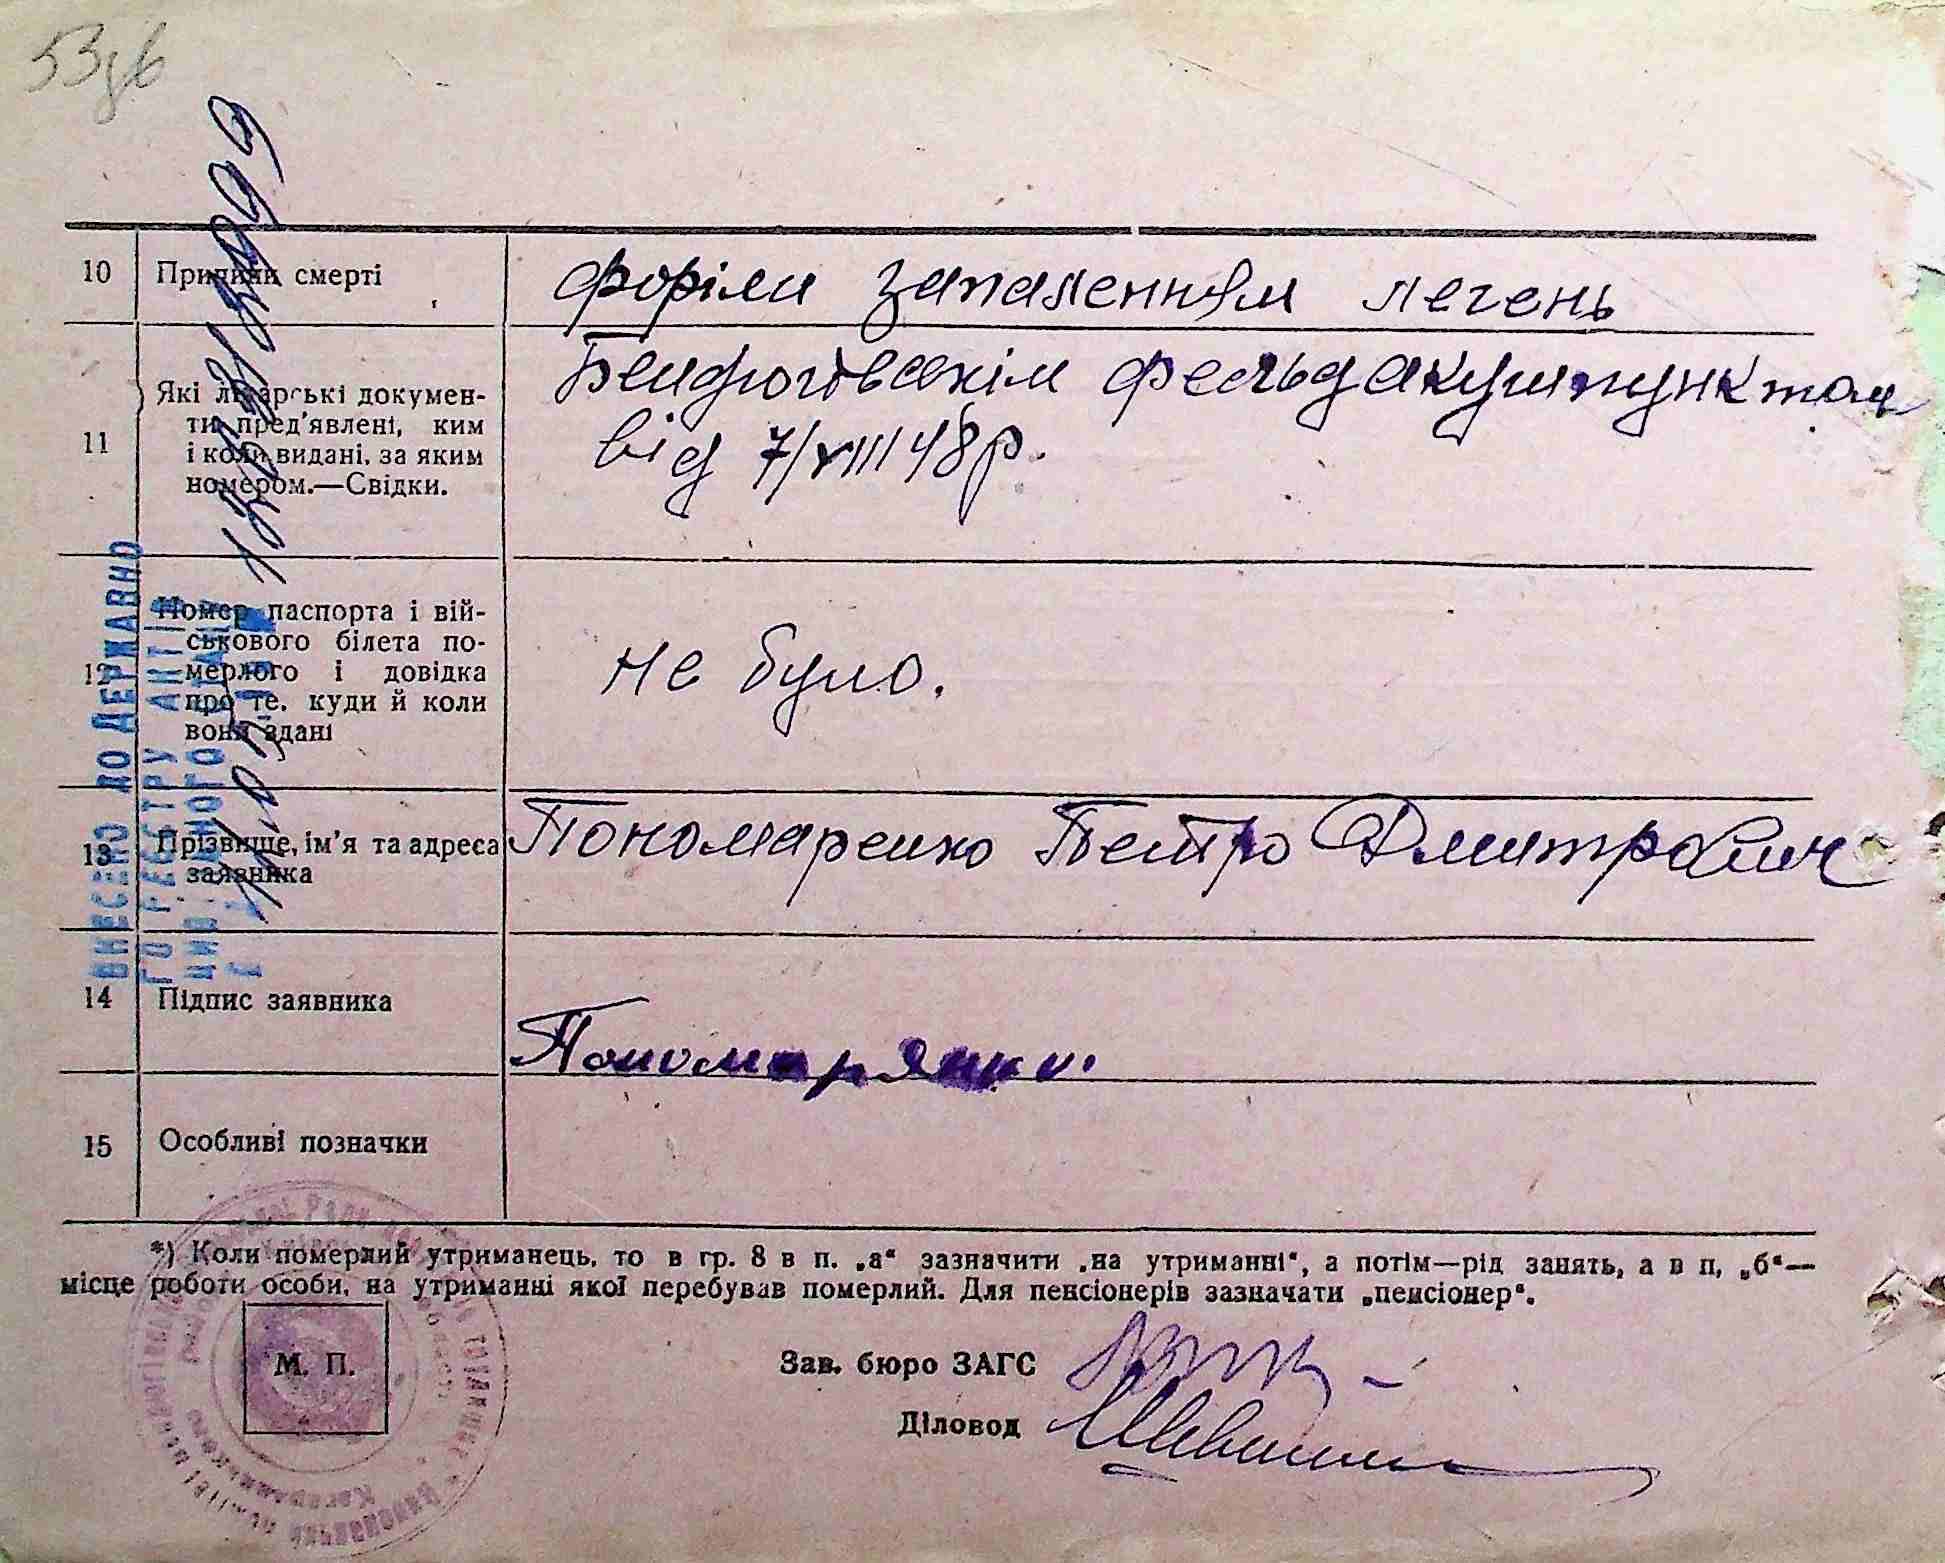 53зв
10 Причини смерті
запаленням легень
11 Які лікарські докумен-
ти пред'явлені, ким
і коли видані, за яким
номером.—Свідки.
фельдакушпунктом
від 7/VIII 48р.
12 Номер паспорта і вій-
ськового білета по-
мерлого і довідка
про те, куди й коли
вони здані
не було.
13 Прізвище, ім'я та адреса
заявника
Пономаренко Петро Дмитрович
14 Підпис заявника
15 Особливі позначки
ВНЕСЕНО ДО ДЕРЖАВНО
ГО РЕЄСТРУ АКТІВ
*) Коли померлий утриманець, то в гр. 8 в п. „а“ зазначити „на утриманні“, а потім—рід занять, а в п, „б“—
місце роботи особи, на утриманні якої перебував померлий. Для пенсіонерів зазначати „пенсіонер“.
М. П.
Зав. бюро ЗАГС
Діловод